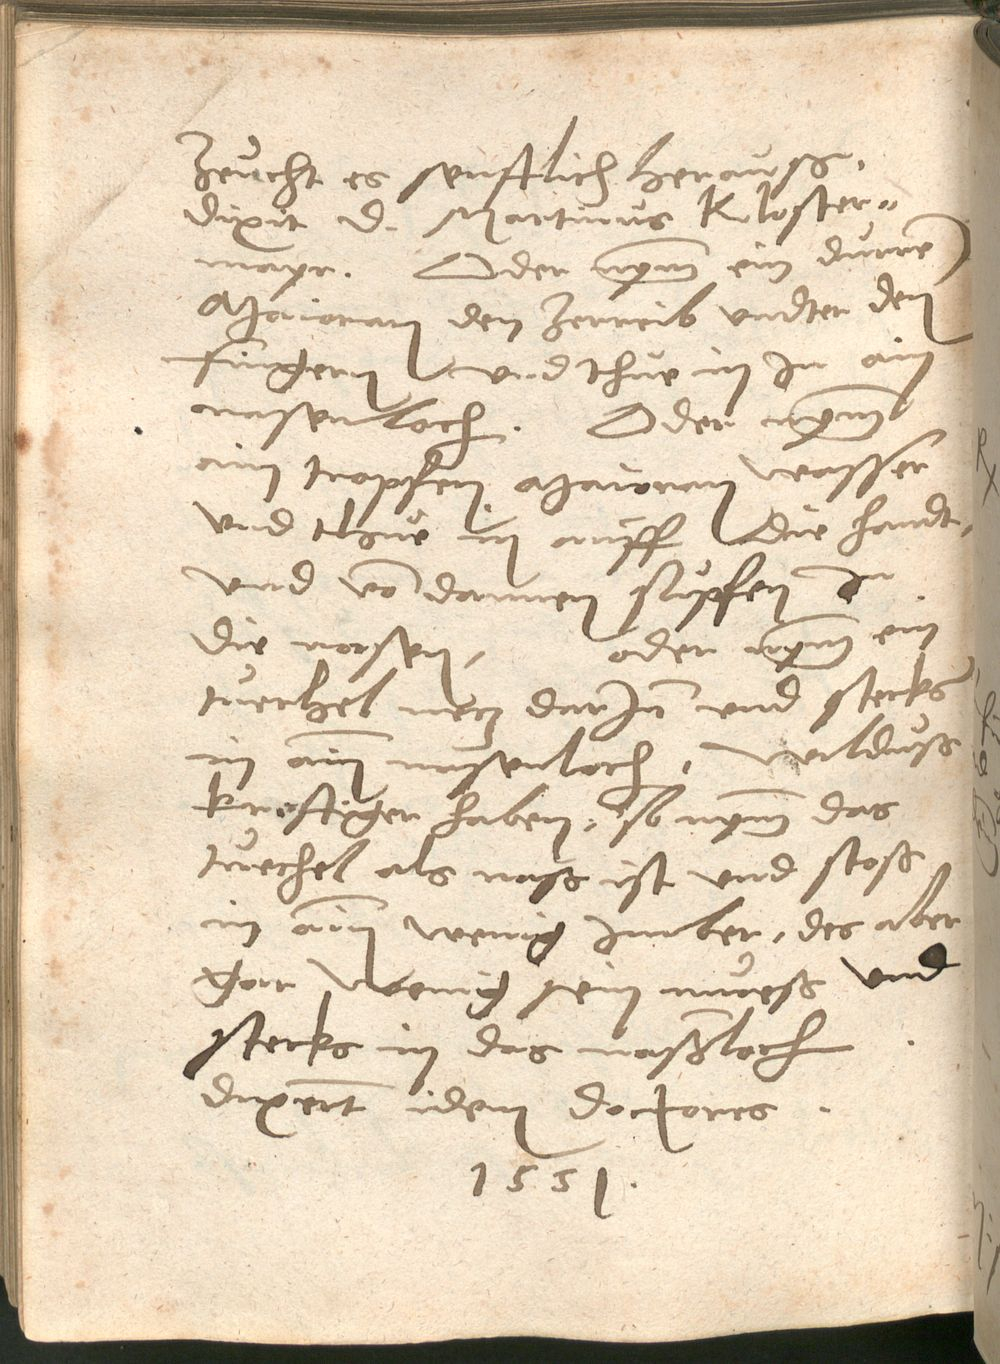 Zeucht es senfftlich herauß,
dixit D. Martinus Kloster-
mayr. Oder nym̄ ein durrē
Maioram den Zerreib vndter den
fingern vnd thue in In ain
nasenloch. Oder nym̄
ain tropfen Maioram wasser
vnd thue in auff die handt,
vnd vō dannen supfen In
die nasen, oder nym̄ ein
tuechel netz darJn̄ vnd stecks
in ain̄ nasenloch, wilduß
krefftiger haben, so nym̄ das
tuechel als naß ist vnd stoß
in ain̄ wenig Imber, des aber
gar wenig sein mueß vnd
stecks in das naßloch
dixerūt idem doctores.
1551.